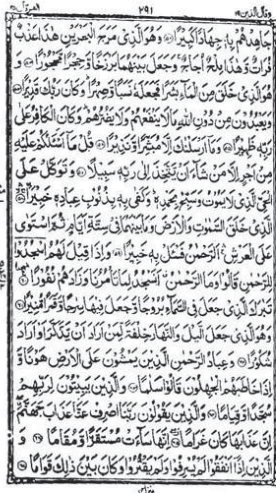 وقال الذين ۱۹ ۲۹۱ الفرقان ۲۵
جَاهِدْهُمْ بِهٖ جِهَادًا كَبِيْرًا ۝ وَهُوَ الَّذِيْ مَرَجَ الْبَحْرَيْنِ هٰذَا عَذْبٌ
فُرَاتٌ وَّهٰذَا مِلْحٌ اُجَاجٌ وَجَعَلَ بَيْنَهُمَا بَرْزَخًا وَّحِجْرًا مَّحْجُوْرًا ۝ وَ
هُوَ الَّذِيْ خَلَقَ مِنَ الْمَآءِ بَشَرًا فَجَعَلَهٗ نَسَبًا وَّصِهْرًا وَكَانَ رَبُّكَ قَدِيْرًا ۝
وَيَعْبُدُوْنَ مِنْ دُوْنِ اللهِ مَا لَا يَنْفَعُهُمْ وَلَا يَضُرُّهُمْ وَكَانَ الْكَافِرُ عَلٰى
رَبِّهٖ ظَهِيْرًا ۝ وَمَا اَرْسَلْنٰكَ اِلَّا مُبَشِّرًا وَّنَذِيْرًا ۝ قُلْ مَا اَسْئَلُكُمْ عَلَيْهِ
مِنْ اَجْرٍ اِلَّا مَنْ شَآءَ اَنْ يَّتَّخِذَ اِلٰى رَبِّهٖ سَبِيْلًا ۝ وَتَوَكَّلْ عَلَى
الْحَيِّ الَّذِيْ لَا يَمُوْتُ وَسَبِّحْ بِحَمْدِهٖ وَكَفٰى بِهٖ بِذُنُوْبِ عِبَادِهٖ خَبِيْرًا ۝
الَّذِيْ خَلَقَ السَّمٰوٰتِ وَالْاَرْضَ وَمَا بَيْنَهُمَا فِيْ سِتَّةِ اَيَّامٍ ثُمَّ اسْتَوٰى
عَلَى الْعَرْشِ اَلرَّحْمٰنُ فَسْئَلْ بِهٖ خَبِيْرًا ۝ وَاِذَا قِيْلَ لَهُمُ اسْجُدُوْا
لِلرَّحْمٰنِ قَالُوْا وَمَا الرَّحْمٰنُ اَنَسْجُدُ لِمَا تَاْمُرُنَا وَزَادَهُمْ نُفُوْرًا ۝
تَبٰرَكَ الَّذِيْ جَعَلَ فِي السَّمَآءِ بُرُوْجًا وَّجَعَلَ فِيْهَا سِرٰجًا وَّقَمَرًا مُّنِيْرًا ۝
وَهُوَ الَّذِيْ جَعَلَ الَّيْلَ وَالنَّهَارَ خِلْفَةً لِّمَنْ اَرَادَ اَنْ يَّذَّكَّرَ اَوْ اَرَادَ
شُكُوْرًا ۝ وَعِبَادُ الرَّحْمٰنِ الَّذِيْنَ يَمْشُوْنَ عَلَى الْاَرْضِ هَوْنًا وَّ
اِذَا خَاطَبَهُمُ الْجٰهِلُوْنَ قَالُوْا سَلٰمًا ۝ وَالَّذِيْنَ يَبِيْتُوْنَ لِرَبِّهِمْ
سُجَّدًا وَّقِيَامًا ۝ وَالَّذِيْنَ يَقُوْلُوْنَ رَبَّنَا اصْرِفْ عَنَّا عَذَابَ جَهَنَّمَ
اِنَّ عَذَابَهَا كَانَ غَرَامًا ۝ اِنَّهَا سَآءَتْ مُسْتَقَرًّا وَّمُقَامًا ۝ وَ
الَّذِيْنَ اِذَا اَنْفَقُوْا لَمْ يُسْرِفُوْا وَلَمْ يَقْتُرُوْا وَكَانَ بَيْنَ ذٰلِكَ قَوَامًا ۝